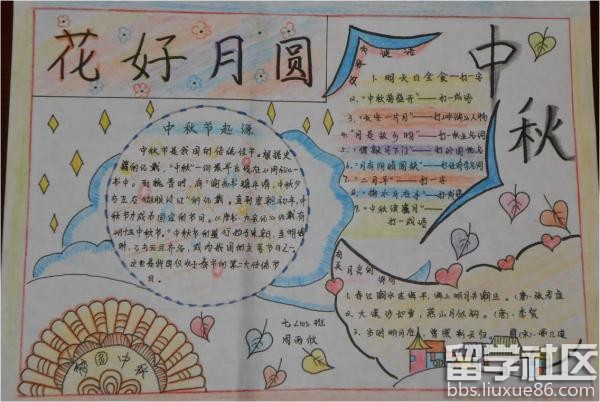 花好月圆
中秋
中秋节起源
中秋节是我国的传统佳节。根据史
籍的记载，“中秋”一词最早出现在《周礼》一
书中。到魏晋时，有“谕尚书镇牛渚，中秋夕
与左右微服泛江”的记载。直到唐朝初年，中
秋节才成为固定的节日。《唐书·太宗记》记载有
“八月十五中秋节”。中秋节的盛行始于宋朝，至明清
时，已与元旦齐名，成为我国的主要节日之一。
这也是我国仅次于春节的第二大传统节
日。
谜语
1.明天日全食——打一字
2.“中秋菊盛开”——打一成语
3.“长安一片月”——打 人物
4.“月是故乡明”——打一 名词
5.“偕影月下门”——打
6.“月有阴晴圆缺”——打经济学名词
7.“二月平”——打一字
8.掬水月在手——打
9.“中秋赏腊月”——
打一成语
有关月亮的诗句
1.春江潮水连海平，海上明月共潮生。（唐）张若虚
2.大漠沙如雪，燕山月似钩。（唐）李贺
3.当时明月在，曾照彩云归。（宋）晏几道
七 班
周雨欣
梦圆中秋
留学社区
bbs.liuxue86.com